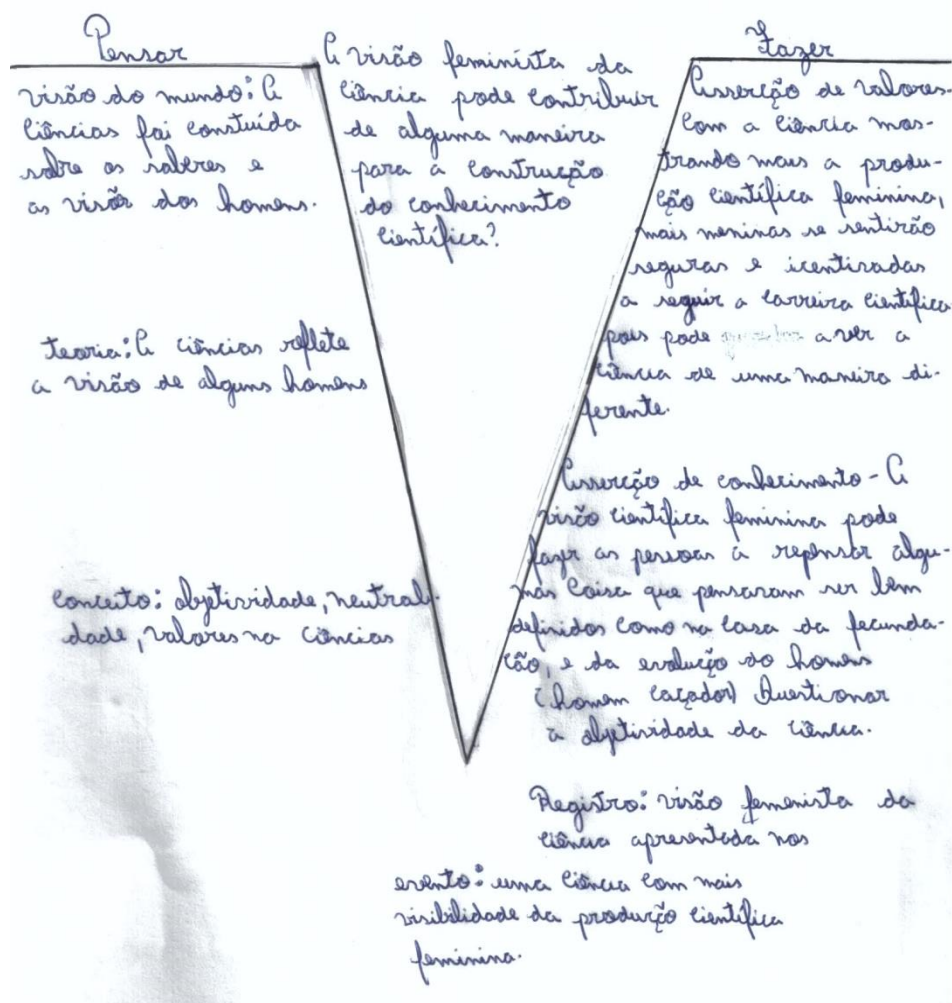 Pensar
visão do mundo: A
Ciências foi constuída
sobre os saberes e
as visões dos homens.
teoria: A ciências reflete
a visão de alguns homens
conceito: objetividade, neutrali-
dade, valores na ciências
A visão feminista da
Ciência pode contribuir
de alguma maneira
para a construção
do conhecimento
científica?
Fazer
Asserção de valores-
Com a Ciência mos-
trando mais a produ-
ção científica feminina,
mais meninas se sentirão
seguras e icentivadas
a seguir a carreira científica
pois pode a ver a
ciência de uma maneira di-
ferente.
Asserção de conhecimento - A
visão científica feminina pode
fazer as pessoas a repensar algu-
mas Coisa que pensaram ser bem
definidos como na casa da fecunda-
ção, e da evolução do homens
(homem caçador) Questionar
a objetividade da ciência.
Registro: visão femenista da
ciência apresentada nos
evento: uma Ciência com mais
visibilidade da produção científica
feminina.